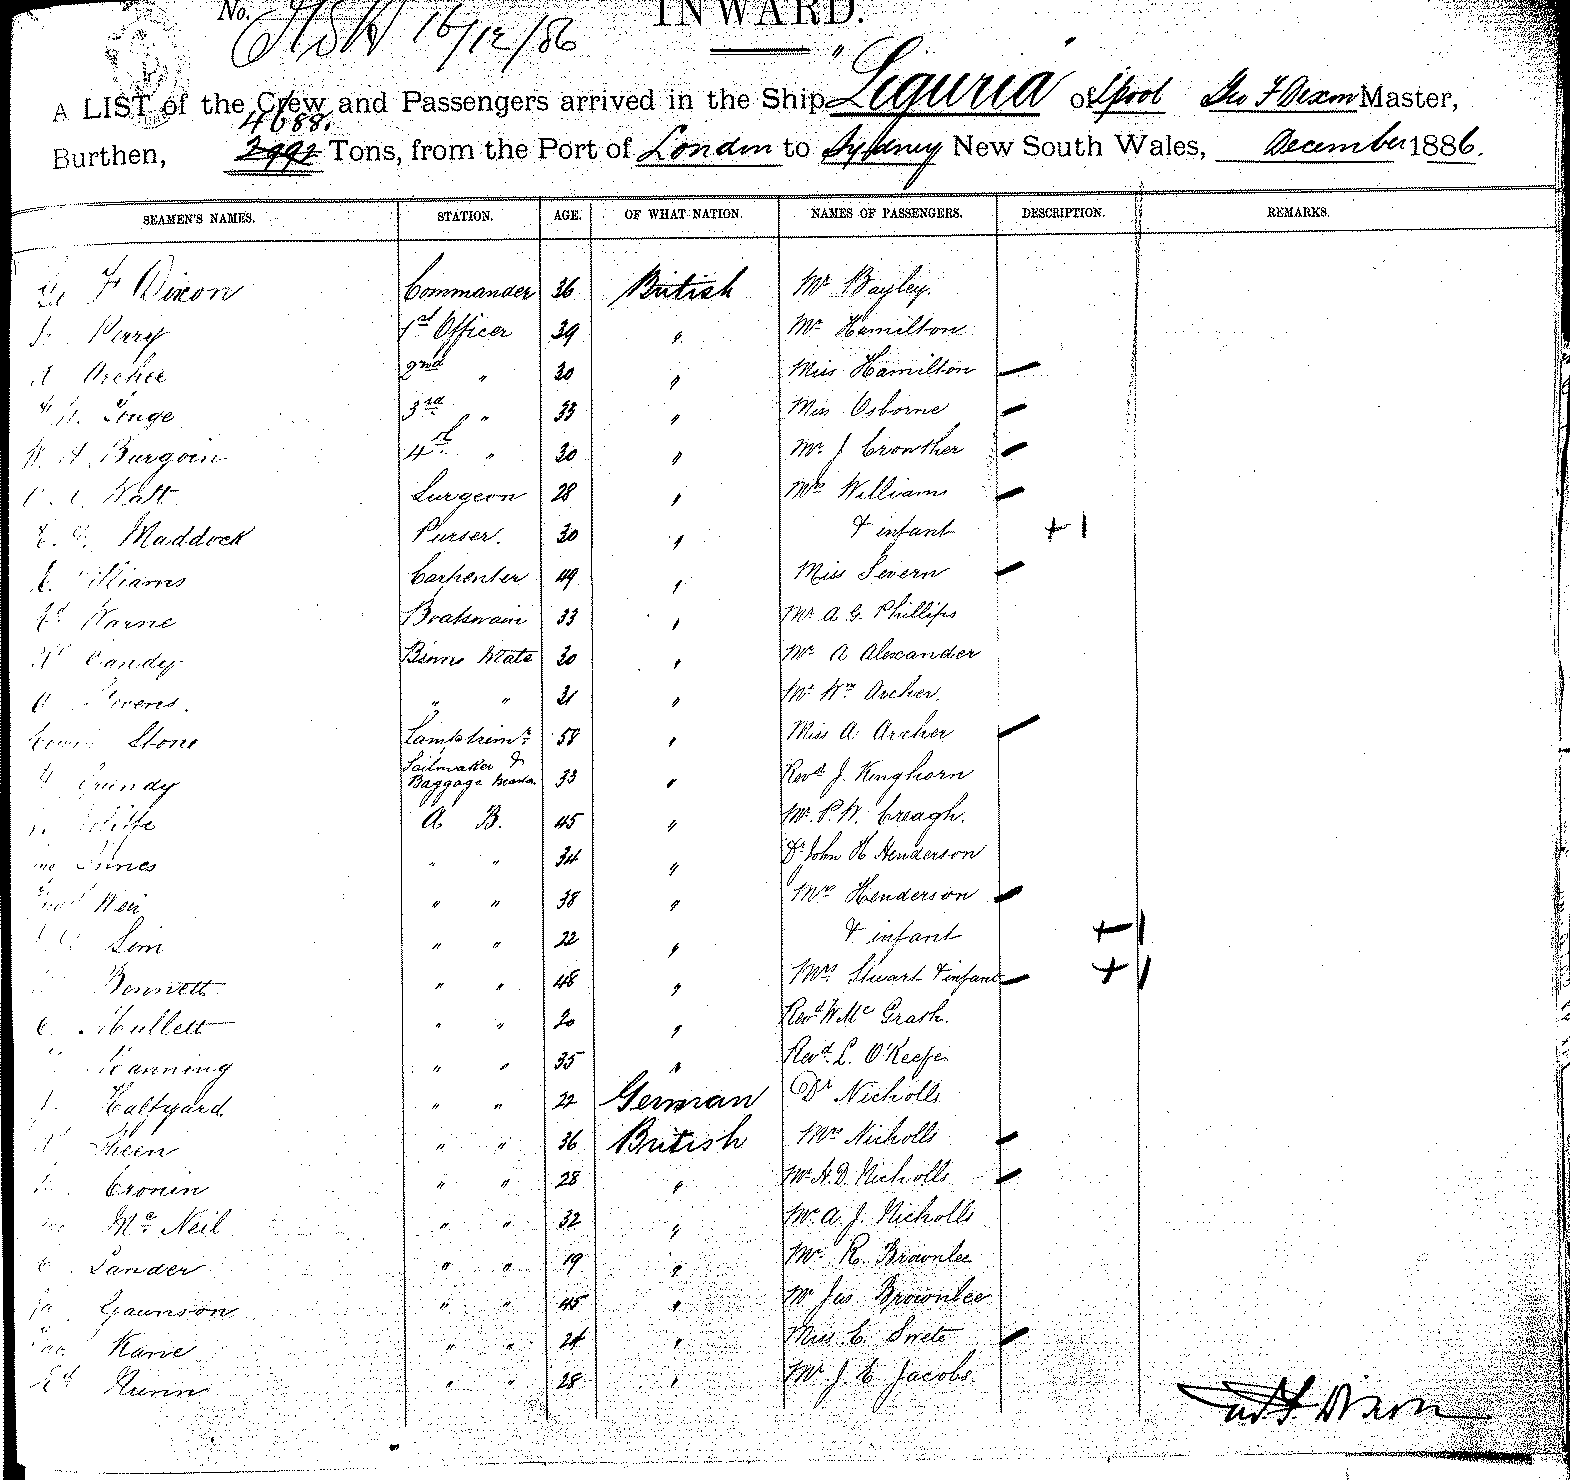 No. 16/12/86
INWARD.
A LIST of the Crew and Passengers arrived in the Ship "Liguria" of Lpool Geo F Dixon Master,
4688.
Burthen, 2992 Tons, from the Port of London to Sydney New South Wales, December 1886.
SEAMEN'S NAMES. STATION. AGE. OF WHAT NATION. NAMES OF PASSENGERS. DESCRIPTION. REMARKS.
F Dixon Commander 36 British Mr Bayley.
Parry 1st Officer 39 " Mr Hamilton
Archer 2nd " 30 " Miss Hamilton
Tonge 3rd " 33 " Miss Osborne
W. A. Burgoin 4th " 30 " Mr J Crowther
Watt Surgeon 28 " Mrs Williams
Maddock Purser. 30 " & infant + 1
Williams Carpenter 49 " Miss Severn
Warne Boatswain 33 " Mr A G Phillips
Candy Bswns Mate 30 " Mr A Alexander
Stevens. " " 31 " Mr Wm Archer.
Stone Lamptrimr 58 " Miss A Archer
Grundy Sailmaker & Baggage 33 " Revd J. Kinghorn
A B. 45 " Mr P. W. Creagh.
Innes " " 34 " Dr John H Henderson
Weir " " 38 " Mrs Henderson
Sim " " 22 " & infant + 1
Bennett " " 48 " Mrs Stuart & infant + 1
Mullett " " 20 " Revd W Mc Grath.
Manning " " 35 " Revd. L. O'Keefe
Halfyard " " 22 German Dr Nicholls
Sheen " " 36 British Mrs Nicholls
Cronin " " 28 " Mr A. D. Nicholls
Mc Neil " " 32 " Mr A. J. Nicholls
Sander " " 19 " Mr R. Brownlee
Gaunson " " 45 " Mr Jas Brownlee
Kane " " 24 " Miss C. Swete
Nunn " " 28 " Mr J. E Jacobs
Geo F. Dixon